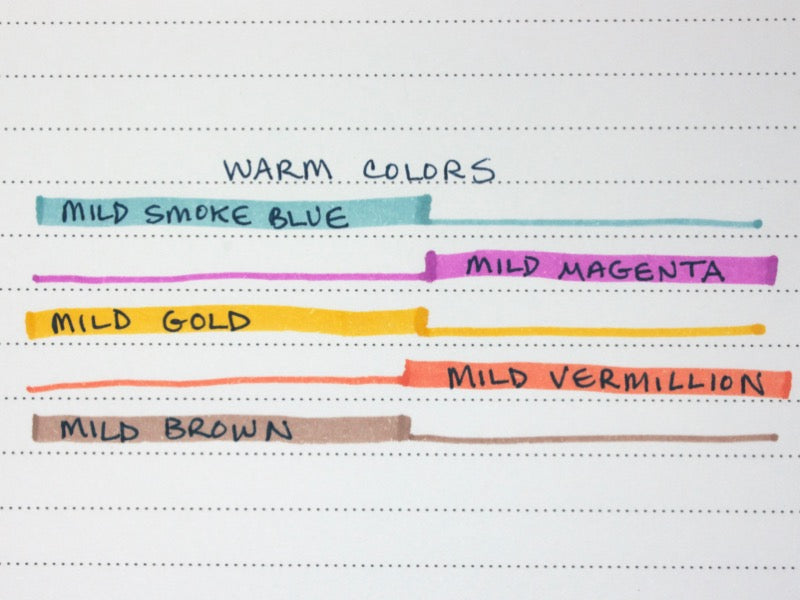 WARM COLORS
MILD SMOKE BLUE
MILD MAGENTA
MILD GOLD
MILD VERMILLION
MILD BROWN